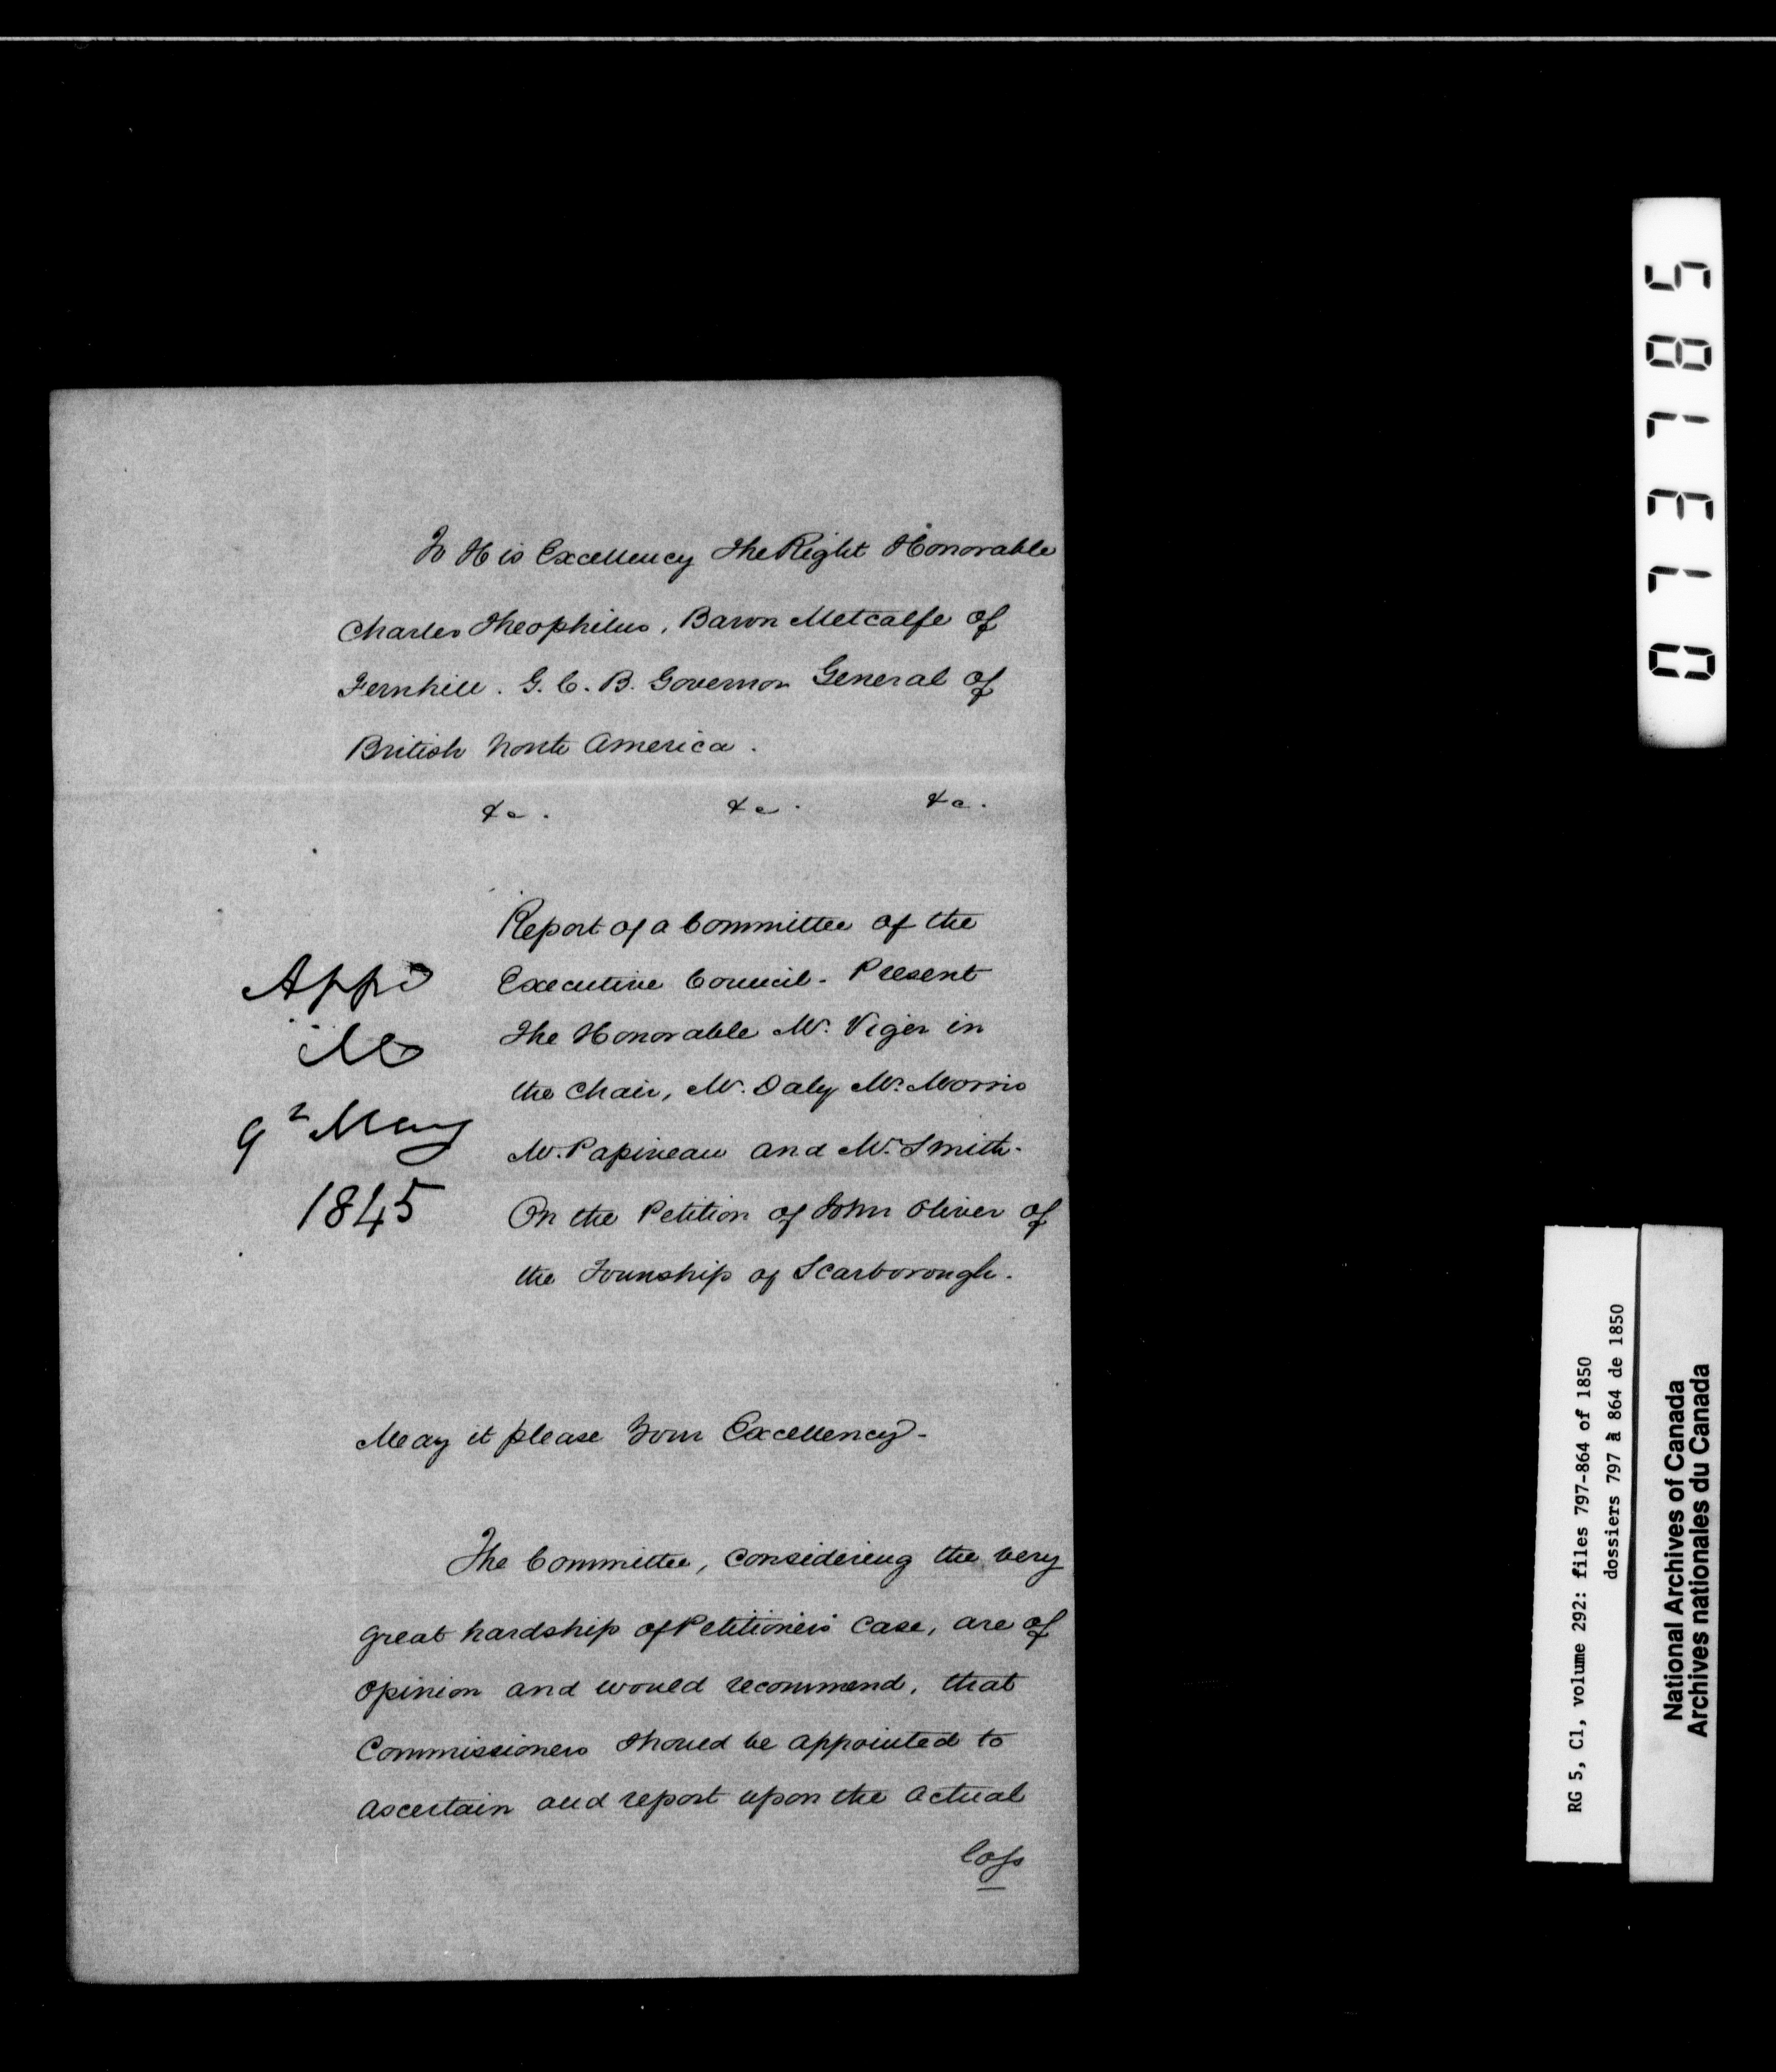 To His Excellency The Right Honorable
Charles Theophilus, Baron Metcalfe of
Fernhill. G. C. B. Governor General of
British North America.
&c. &c. &c.
Report of a Committee of the
Executive Council. Present
The Honorable Mr. Viger in
the Chair, Mr. Daly Mr. Morris
Mr. Papineau and Mr. Smith.
On the Petition of John Oliver of
the Township of Scarborough.
Appd
M
9th May
1845
May it please Your Excellency-
The Committee, considering the very
great hardship of Petitioner's case, are of
opinion and would recommend, that
Commissioners should be appointed to
ascertain and report upon the actual
loss
073785
RG 5, C1, volume 292: files 797-864 of 1850
dossiers 797 à 864 de 1850
National Archives of Canada
Archives nationales du Canada